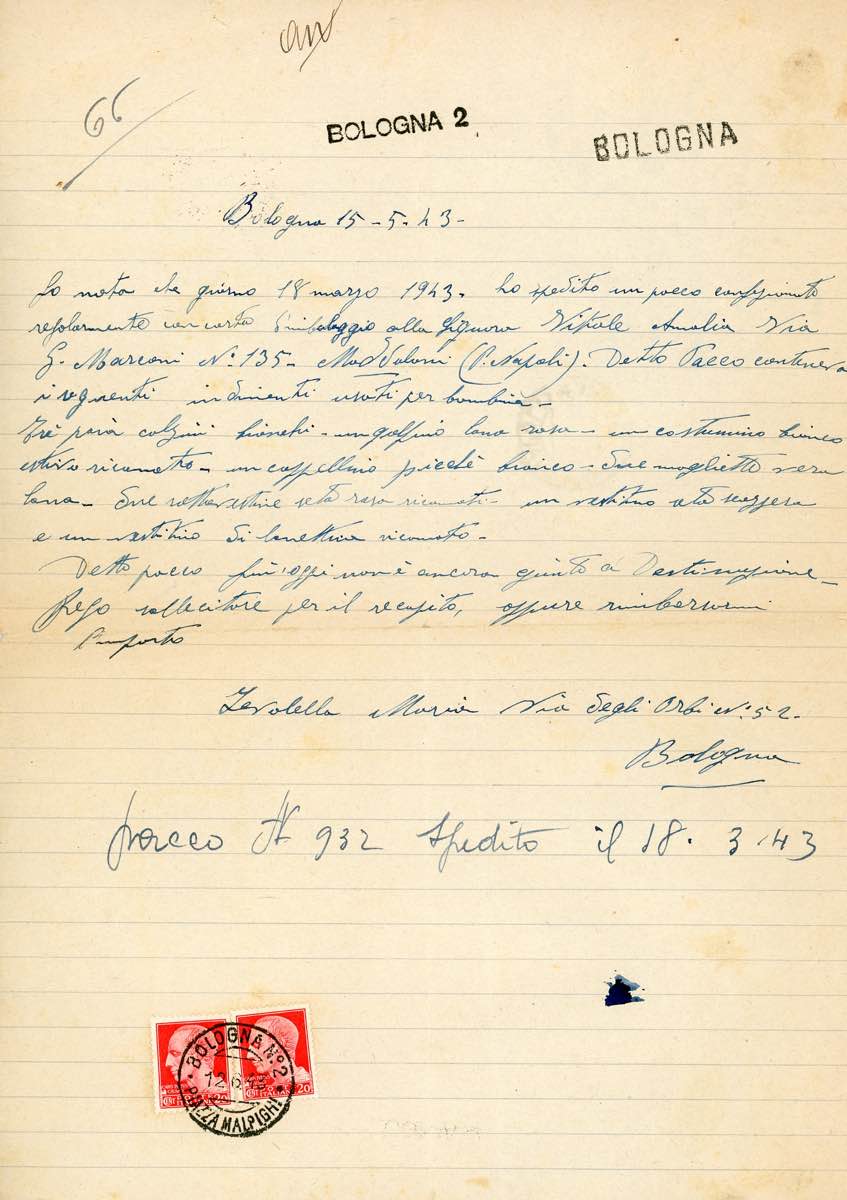 66
BOLOGNA 2
BOLOGNA
Bologna 15-5-43-
Lo nota che giorno 18 marzo 1943- ho spedito un pacco confezionato
regolarmente con carta imballaggio alla Signora Vitale Amalia Via
G. Marconi N° 135- Maddaloni (P. Napoli). Detto Pacco conteneva
i seguenti indumenti usati per bambina-
Trè paia calzini bianchi- un golfino lana rosa- un costumino bianco
estivo ricamato- un cappellino picchè bianco- due magliette vera
lana- due sottovestine seta rosa ricamati- un vestitino seta scozzese
e un vestitino di lanettina ricamato-
Detto pacco fin'oggi non è ancora giunto a Destinazione-
Prego sollecitare per il recapito, oppure rimborsarmi
l'importo
Maria Via degli Orbi N° 52-
Bologna
pacco N 932 Spedito il 18. 3.43
BOLOGNA N° 2
12.6.43
PIAZZA MALPIGHI
CENT 20